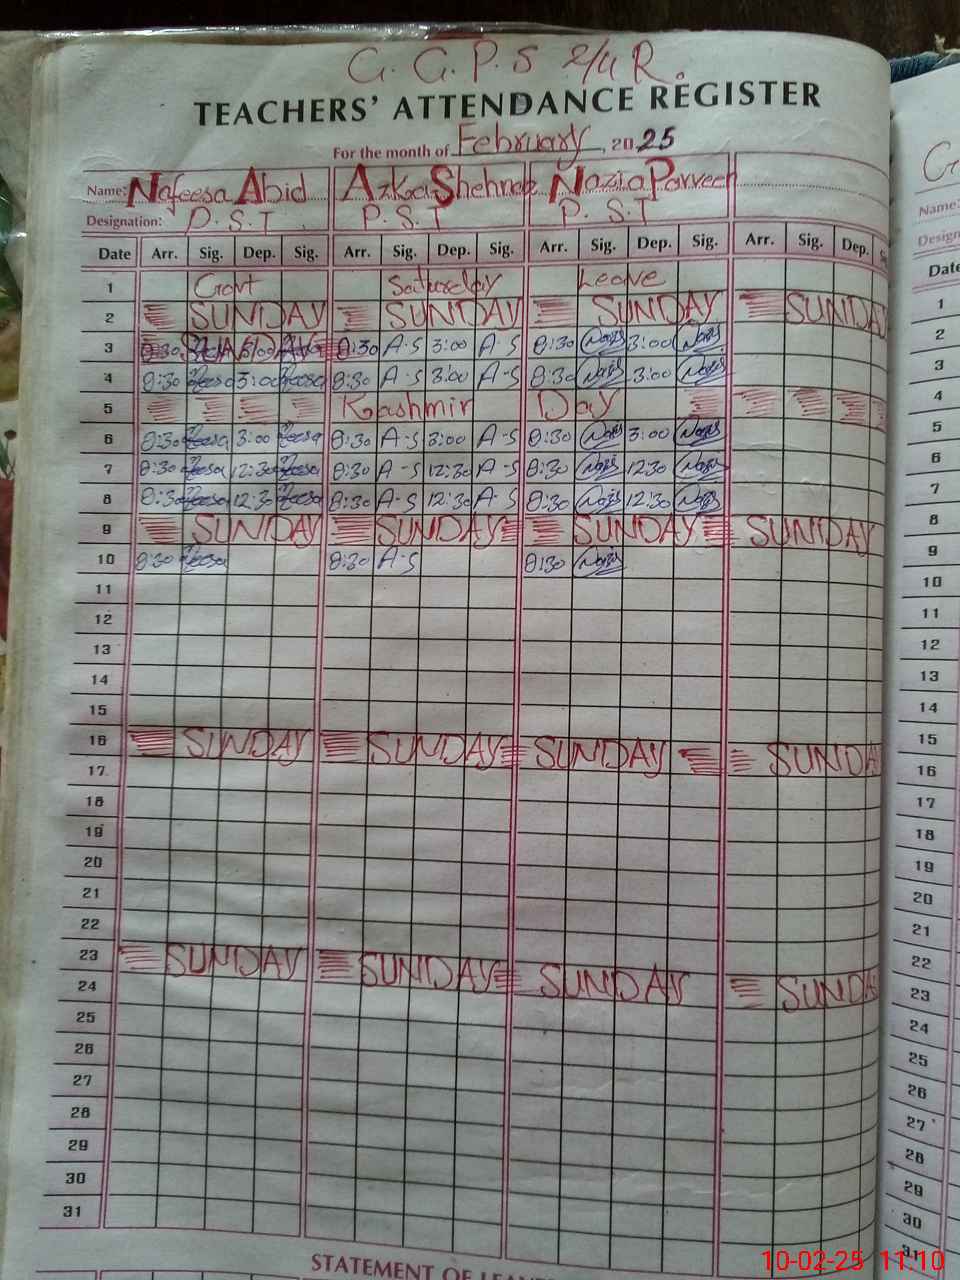 G. G. P. S 2/4 R.
TEACHERS' ATTENDANCE REGISTER
For the month of February, 2025
Name: Nafeesa Abid Azka Shehnaz Nazia Parveen
Designation: P. S. T P. S. T P. S. T
Date Arr. Sig. Dep. Sig. Arr. Sig. Dep. Sig. Arr. Sig. Dep. Sig. Arr. Sig. Dep.
1 Govt Saturday Leave
2 SUNDAY SUNDAY SUNDAY SUNDAY
3 8:30 8:30 A-S 3:00 A-S 8:30 3:00
4 8:30 3:00 8:30 A-S 3:00 A-S 8:30 3:00
5 Kashmir Day
6 8:30 3:00 8:30 A-S 3:00 A-S 8:30 3:00
7 8:30 12:30 8:30 A-S 12:30 A-S 8:30 12:30
8 8:30 12:30 8:30 A-S 12:30 A-S 8:30 12:30
9 SUNDAY SUNDAY SUNDAY SUNDAY
10 8:30 8:30 A-S 8:30
11
12
13
14
15
16 SUNDAY SUNDAY SUNDAY SUNDAY
17
18
19
20
21
22
23 SUNDAY SUNDAY SUNDAY SUNDAY
24
25
26
27
28
29
30
31
STATEMENT OF LEAVE
G
Name:
Design
Date
1
2
3
4
5
6
7
8
9
10
11
12
13
14
15
16
17
18
19
20
21
22
23
24
25
26
27
28
29
30
31
10-02-25 11:10